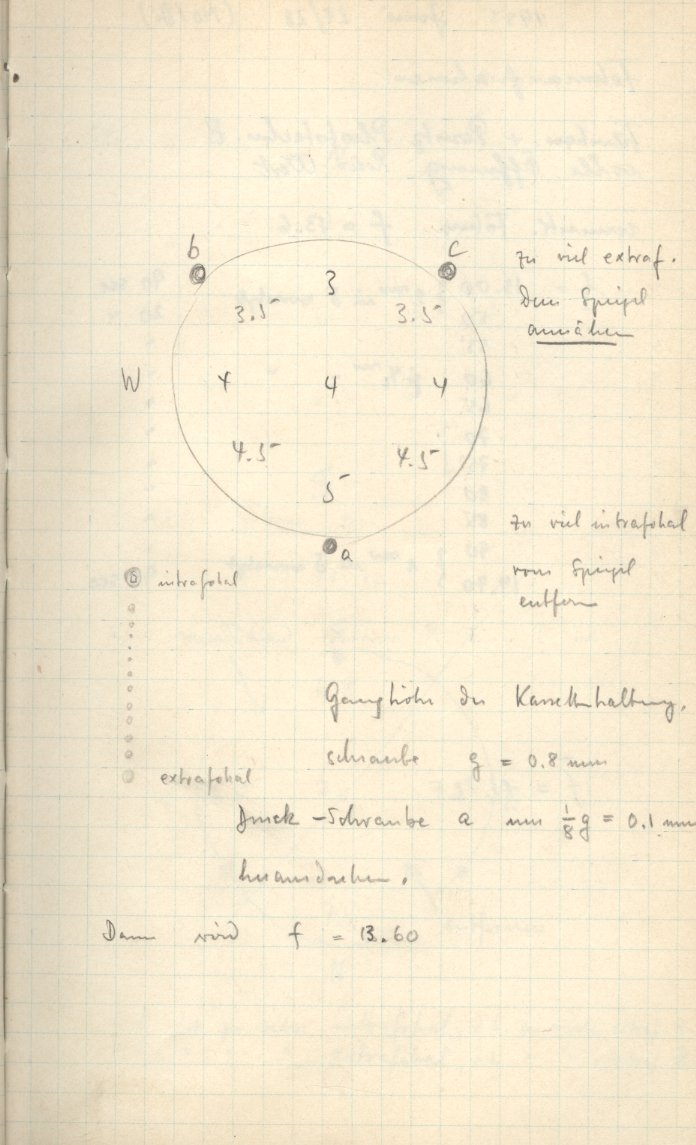 b
c
zu viel extraf.
dem Spiegel
annähern
3
3.5 3.5
W 4 4 4
4.5 4.5
5
zu viel intrafokal
a
vom Spiegel
entfern
intrafokal
Ganghöhe der Kassettenhaltung.
schraube g = 0.8 mm
extrafokal
Druck-Schraube a um 1/8 g = 0.1 mm
herausdrehen.
Dann wird f = 13.60